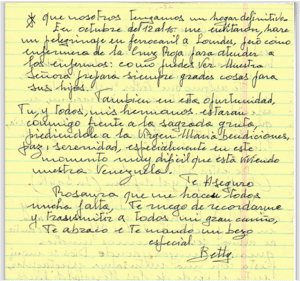 * que nosotros tengamos un hogar definitivo.
En octubre del 12 al 18 me invitaron, hare
un peregrinaje en ferrocaril a Lourdes, però como
enfermera de la Cruz Roja para atender a
los enfermos: como puedes ver Nuestra
Señora prepara siempre grades cosas para
sus hijos.
Tambien en esta oportunidad,
Tu, y todos, mis hermanos estaran
conmigo frente a la sagrada gruta
pidiendole a la Virgen Maria bendiciones,
paz i serenidad, especialmente en este
momento muy dificil que està viviendo
nuestra Venezuela.
Te Aseguro
Rosaura que me hacen todos
mucha falta. Te ruego de recordarme
y trasmitir a todos mi gran cariño,
Te abrazo e te mando un bezo
especial.
Betty